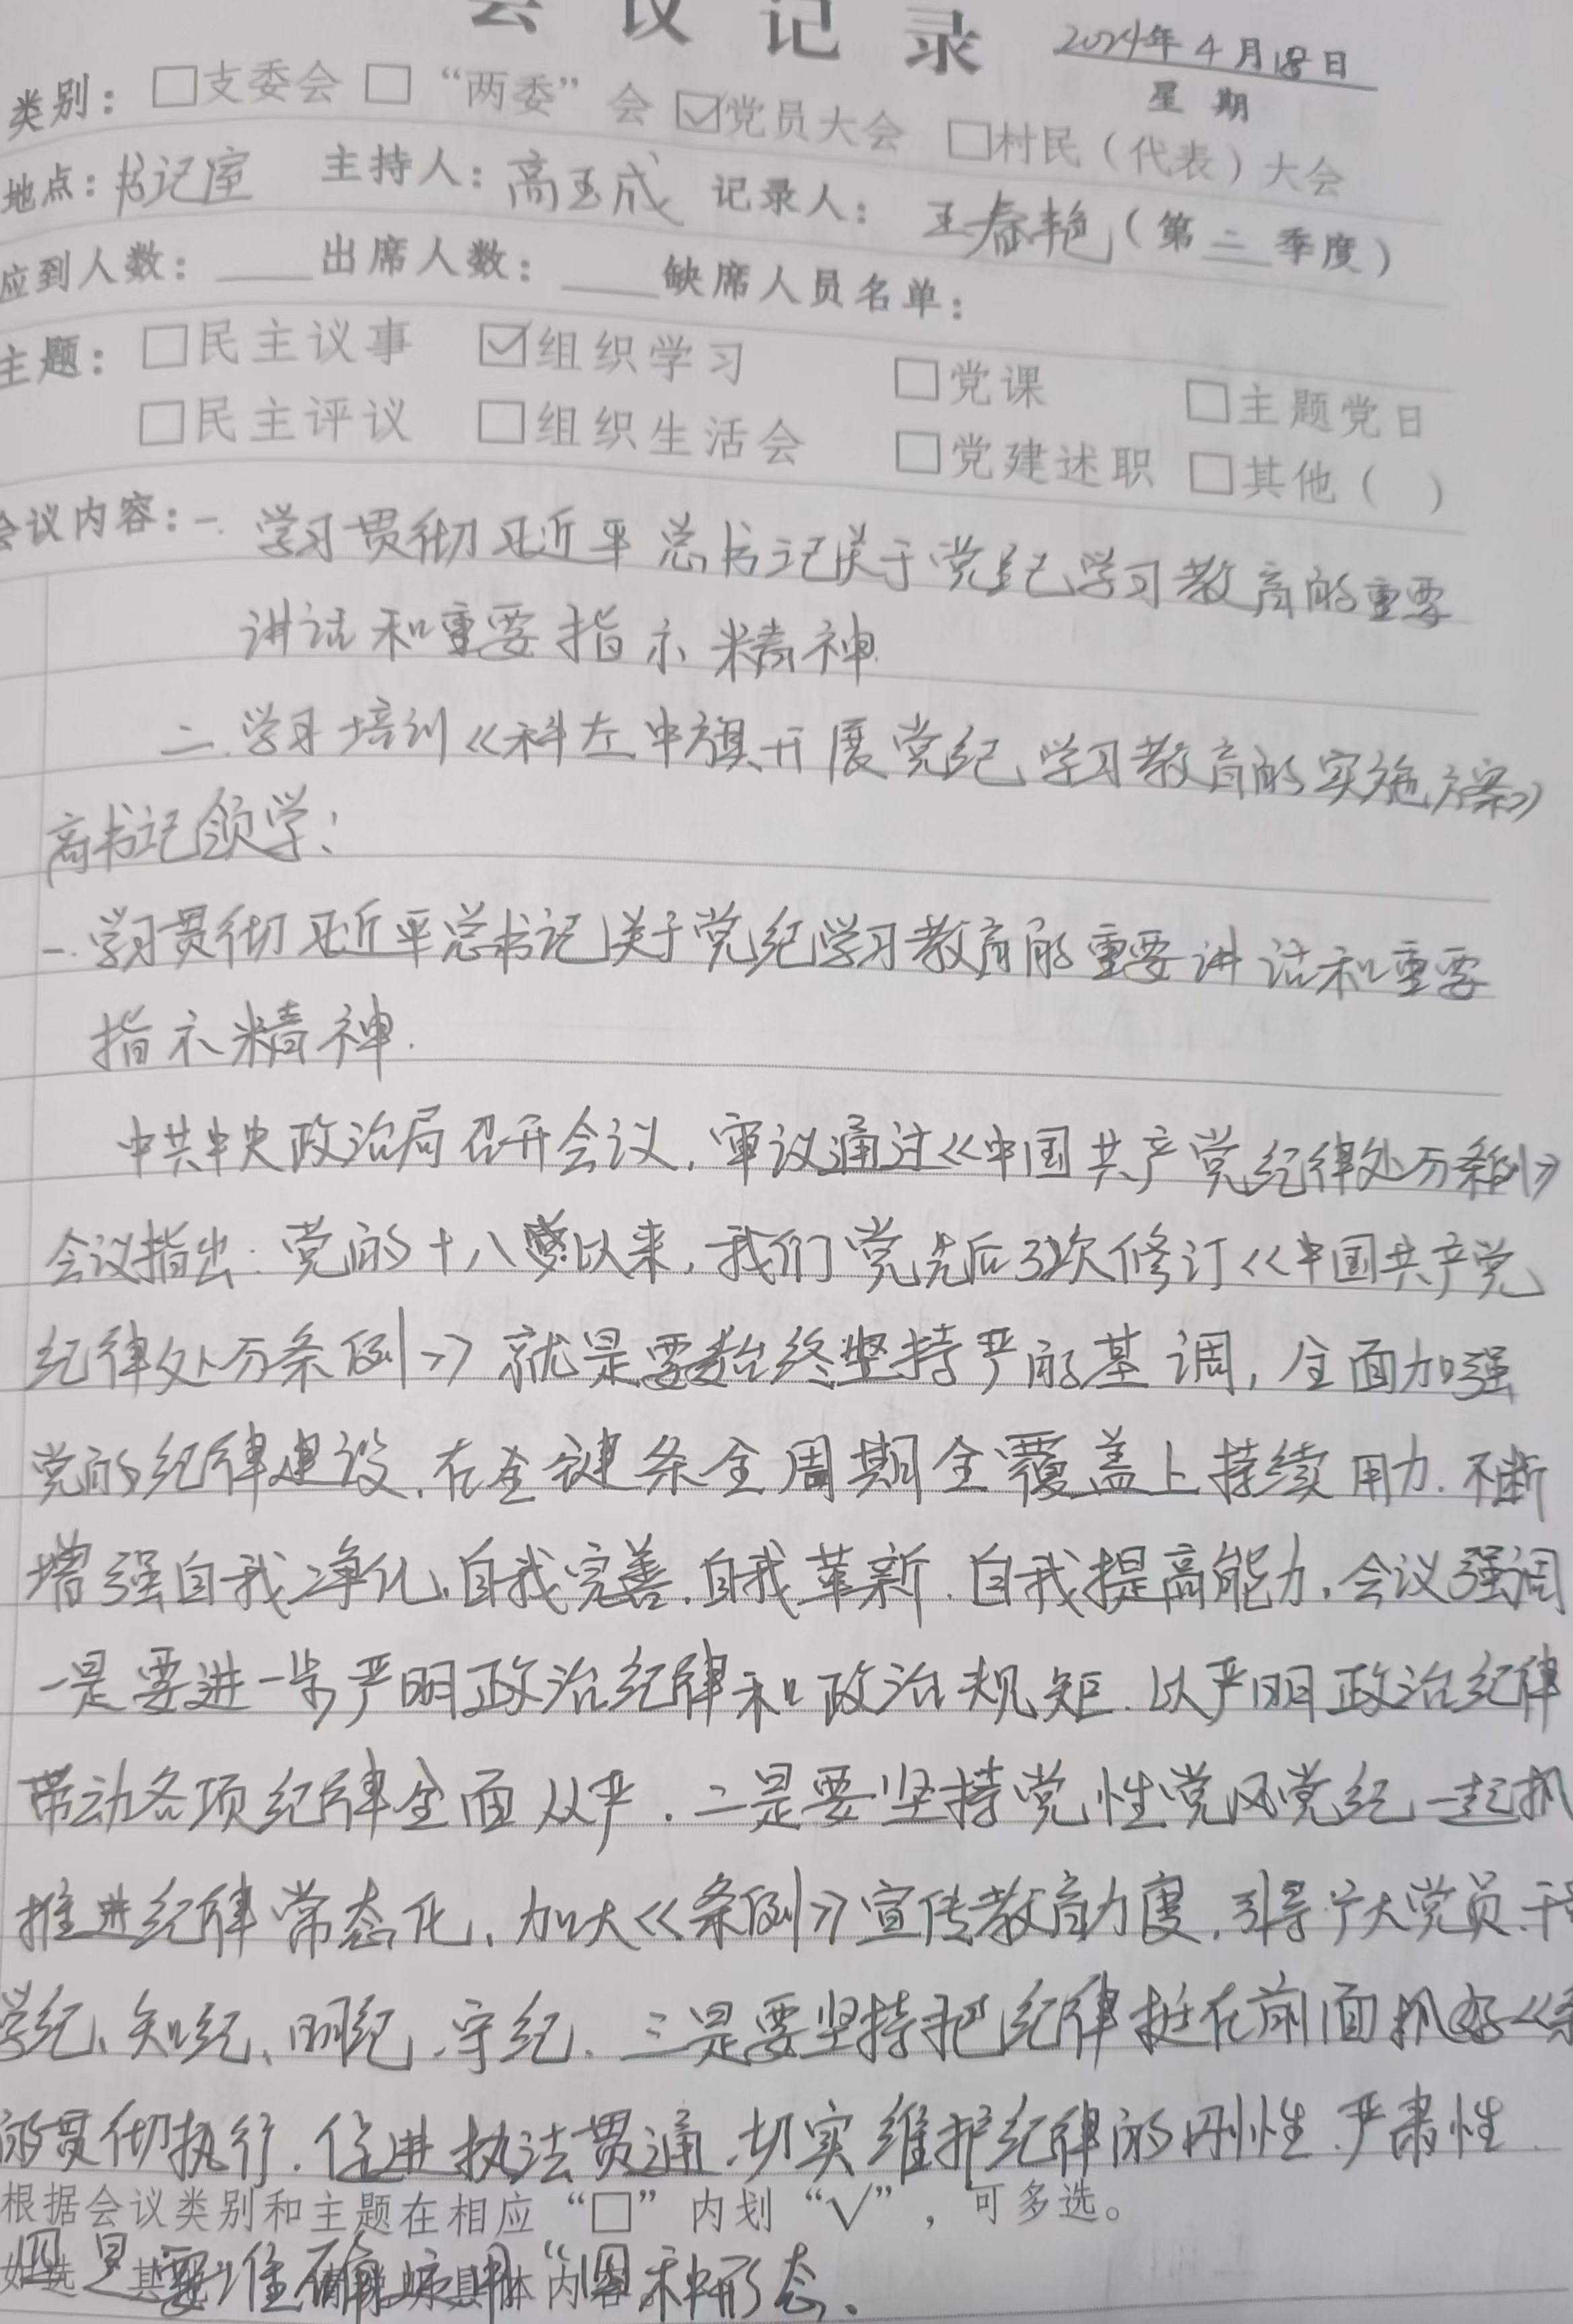 会议记录
2024年4月18日
星期
类别：□支委会 □“两委”会 ☑党员大会 □村民（代表）大会
地点：书记室 主持人：高玉成 记录人：王春艳（第二季度）
应到人数：____出席人数：____缺席人员名单：
主题：□民主议事 ☑组织学习 □党课 □主题党日
□民主评议 □组织生活会 □党建述职 □其他（ ）
会议内容：一.学习贯彻习近平总书记关于党纪学习教育的重要
讲话和重要指示精神.
二.学习培训《科左中旗开展党纪学习教育的实施方案》
高书记领学：
一.学习贯彻习近平总书记关于党纪学习教育的重要讲话和重要
指示精神.
中共中央政治局召开会议，审议通过《中国共产党纪律处分条例》
会议指出：党的十八以来，我们党先后3次修订《中国共产党
纪律处分条例》就是要始终坚持严的基调，全面加强
党的纪律建设.在全键条全周期全覆盖上持续用力.不断
增强自我净化、自我完善.自我革新.自我提高能力.会议强调
一是要进一步严明政治纪律和政治规矩.以严明政治纪律
带动各项纪律全面从严.二是要坚持党性党风党纪一起抓
推进纪律常态化、加大《条例》宣传教育力度.引导广大党员.干
学纪、知纪、明纪、守纪.三是要坚持把纪律挺在前面抓好《条
的贯彻执行.促进执法贯通.切实维护纪律的刚性.严肃性.
根据会议类别和主题在相应“□”内划“√”，可多选。
四是要准确运用“四种形态.